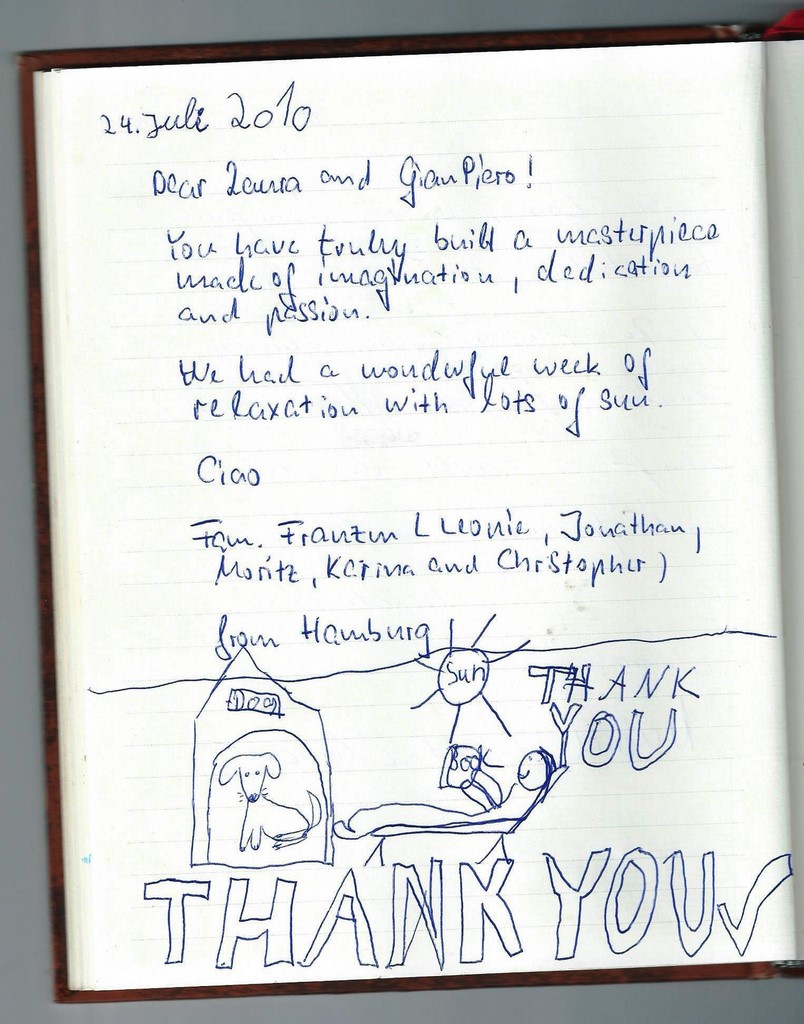 24. Juli 2010
Dear Laura and GianPiero!
You have truhly build a masterpiece
made of imagination, dedication
and passion.
We had a wonderful week of
relaxation with lots of sun.
Ciao
Fam. (Leonie, Jonathan,
Moritz, Karina and Christopher)
from Hamburg
Sun
THANK
YOU
Dog
Book
THANK YOU